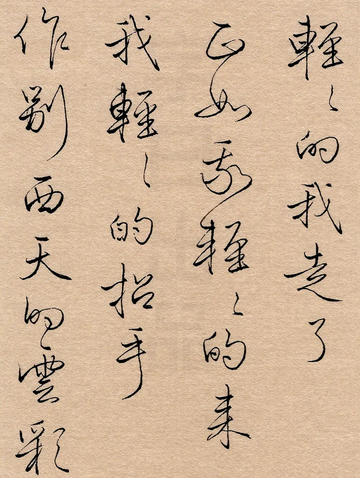 輕〻的我走了
正如我輕〻的来
我輕〻的招手
作别西天的雲彩